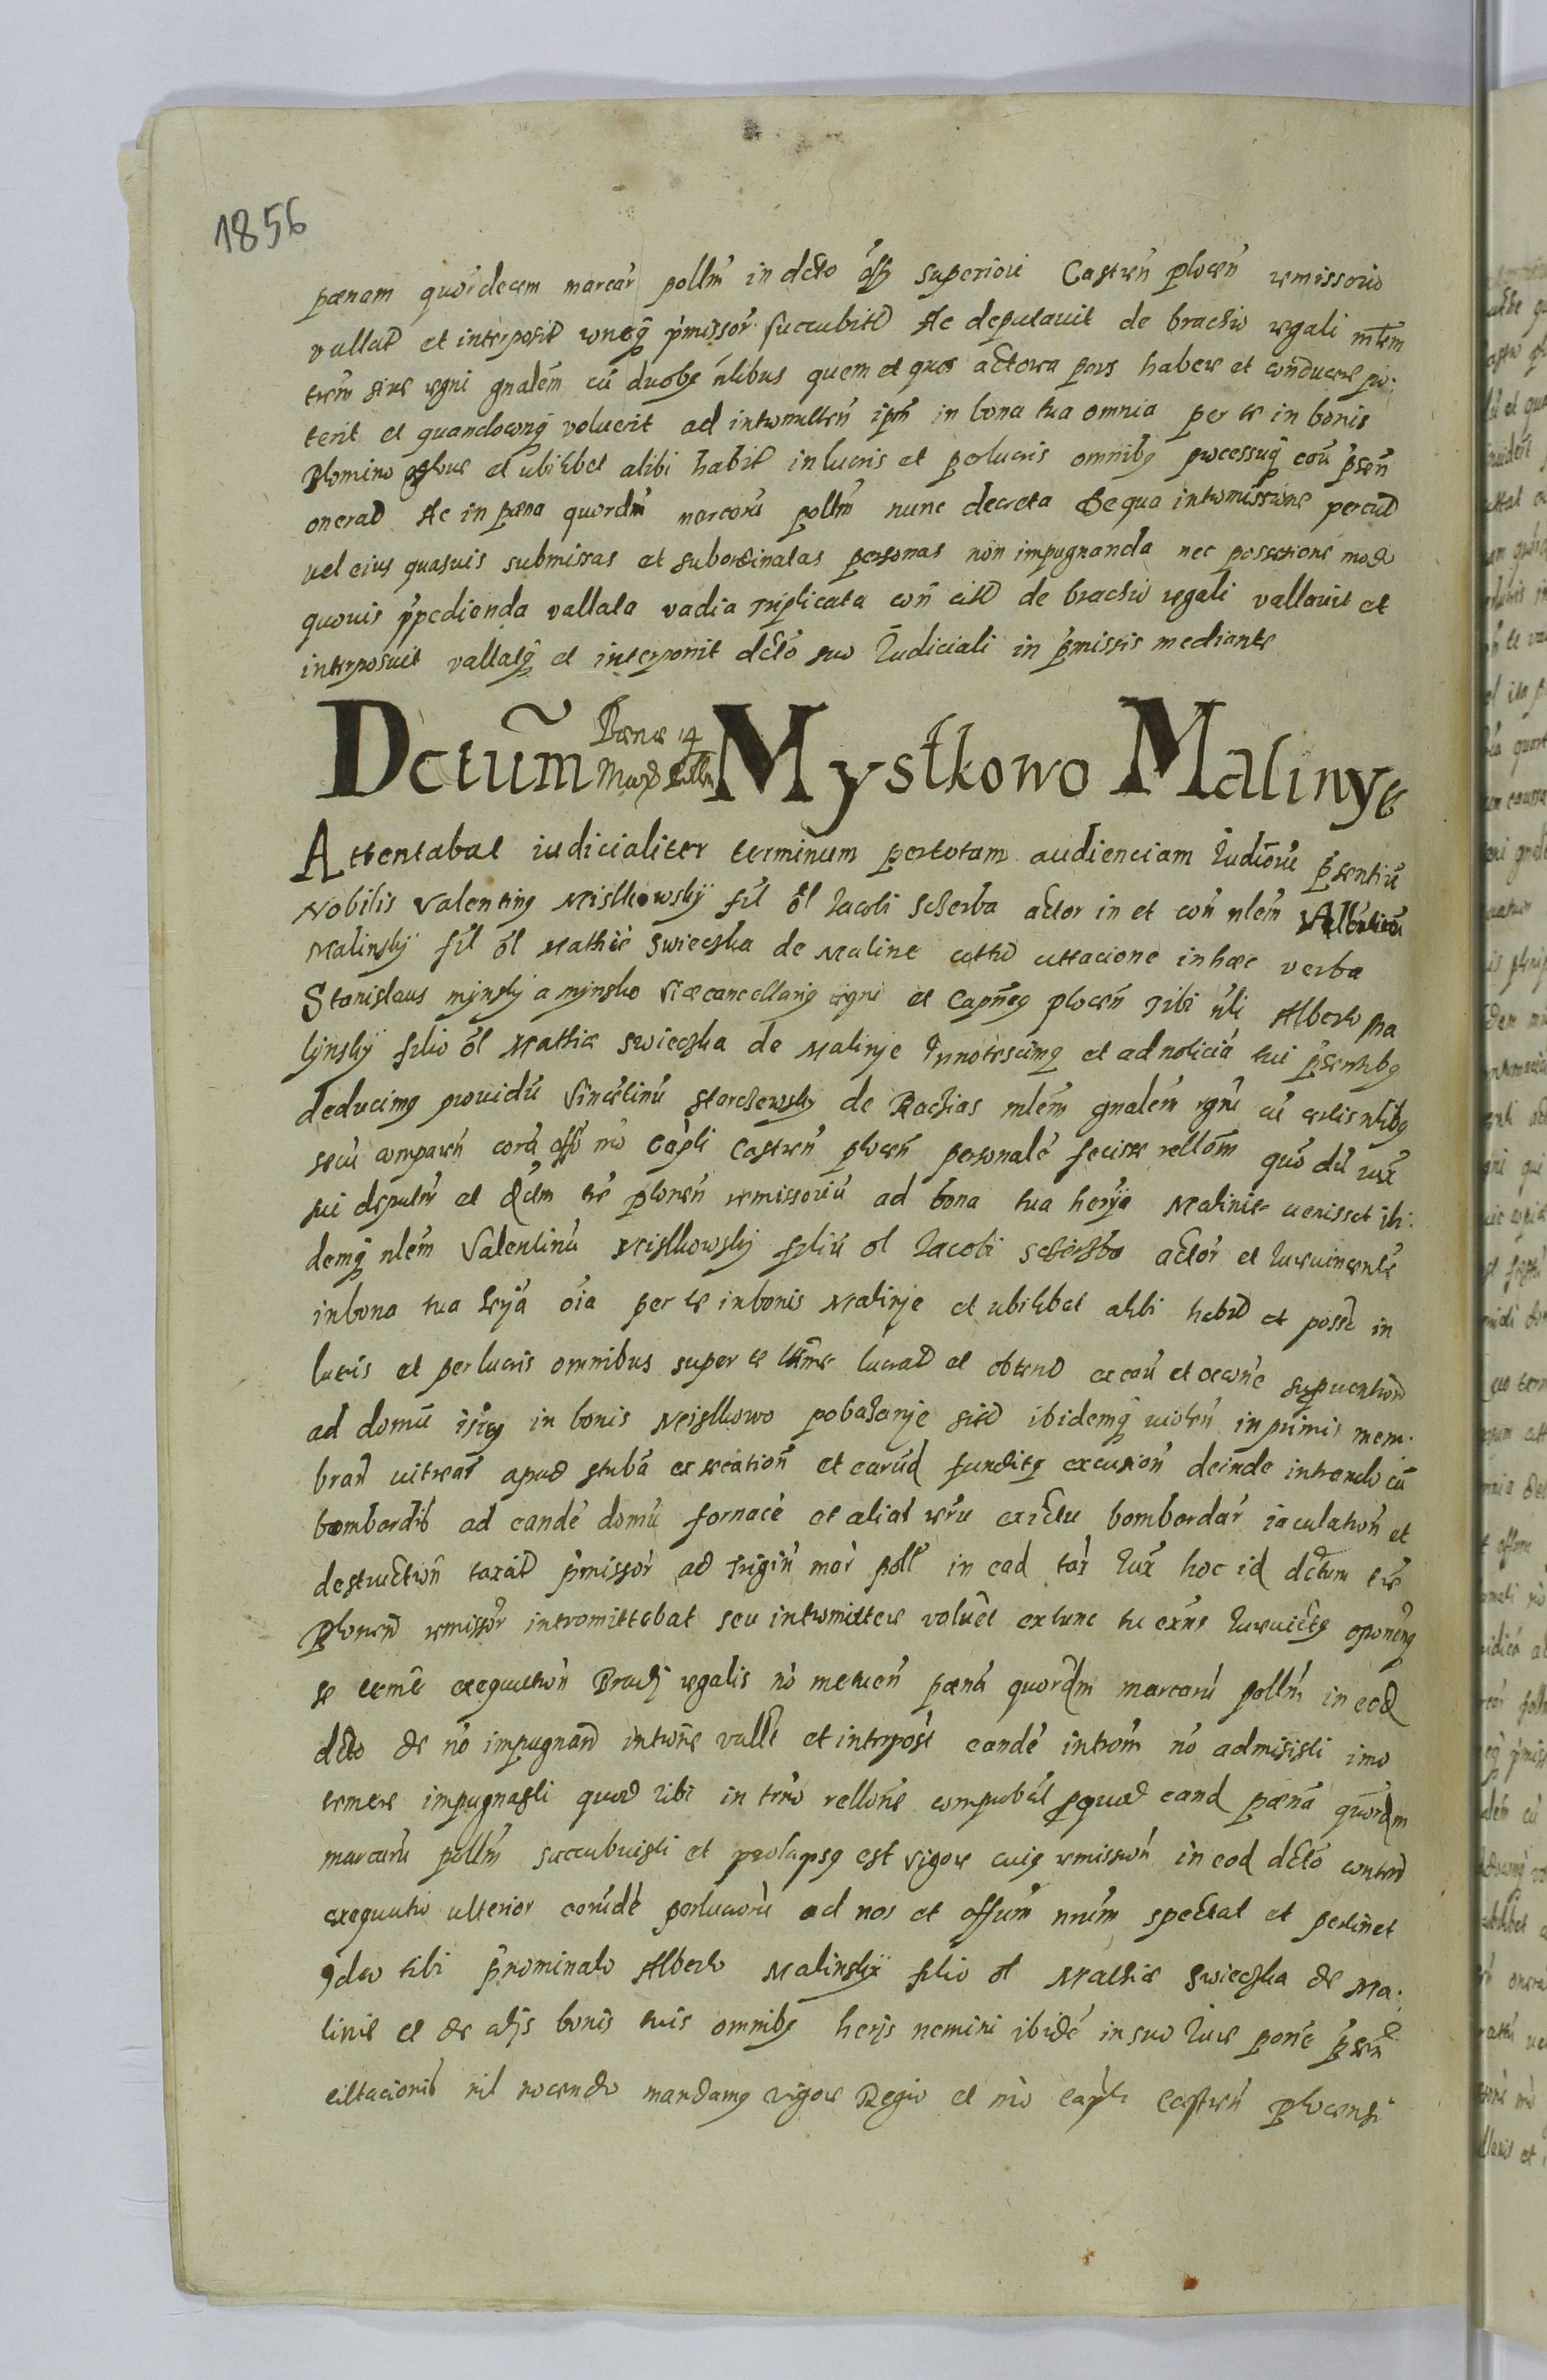 1856
pœnam quordecem marcar pollm in dcto off superiori Castren plocen remissorio
vallat et interposit coneq pmissor succubitt Ac deputavit de brachio regali mlem
trem sive regni gnalem cu duobq nlibus quem et quos actorea pars habere et conducere po:
terit et quandocunq voluerit ad intromitten ipm in bona tua omnia per te in bonis
Plomino et ubilibet alibi habit in lucris et perlucris omnibq processuq eou psen
onerat Ac in pœna quordm marcaru pollm nunc decreta De qua intromissione per cit
vel eius quasuis submissas et subordinatas personas non impugnanda nec possessione modo
quovis ppedienda vallata vadia triplicata con citt de brachio regali vallavit et
interposuit vallatq et interponit dcto suo Iudiciali in pmissis mediante
Dctum Pœnæ 14 Mar Pollm Mystkowo Malinye
Attentabat iudicialiter terminum per totam audienciam Iudioru psentiu
Nobilis Valentinq Mistkowskÿ fil ol Iacobi Scherba actor in et con nlem
Malinskÿ fil ol Mathie Swieczka de Maline citto cittacione in hæc verba
Stanislaus mÿnskÿ a mÿnsko Vicecancellariq regni et Capneq plocen Tibi nli Alberto Ma
lÿnskÿ filio ol Mathiæ Swieczka de Malinÿe Innotescimq et ad noticiá tui psentibq
deducimq providu Vincetinu de Rachias mlem gnalem rgni cu certis nlibq
secu comparen cora offo nro Capli Castren plocen personale fecisse rellom quo dum iux
sui deputar et dctm tre plonen remissoriu ad bona tua herÿa Malinie venisset ibi:
demq nlem Valentinu Mistkowskÿ filiu ol Iacobi actor et Iurevincente
in bona tua herÿa oia per te in bonis Malinÿe et ubilibet alibi habit et possess in
lucris et perlucris omnibus super te lucrat et obtent
ad domu in bonis Mistkowo pobadanje sitt ibidemq violen in primis mem:
bran vitrear apud stuba et earund funditq excusion deinde intrando cu
bombardis ad eande domu fornace et alias reru ex ictu bombardar iaculation et
destruction taxatt pmissor ad trigin mar poll in ead Iux hoc id dctum tre
Plonen remissor intromittebat seu intromittere voluit extunc tu exns Iurevictq oponenq
se teme exequution Brachÿ regalis no metuen pœna quordm marcaru pollm in eod
dcto de no impugnand introne vallt et interposit eande introm no admisisti imo
temere impugnasti quod tibi in trno rellone comprobat pquod eand pœna quordm
marcaru pollm succubuisti et prolapsq est vigore cuiq remission in eod dcto conten
exequutio ulterior corude perlucoru ad nos et offum nrum spectat et pertinet
Ideo tibi pnominato Alberto Malinskÿ filio ol Mathiæ Swieczka de Ma:
linie et de alÿs bonis tuis omnibq herÿs nemini ibide in suo Iure pone psen
cittacionis nil nocendo mandamq vigore Regio et nro Capli Castren Plocensi